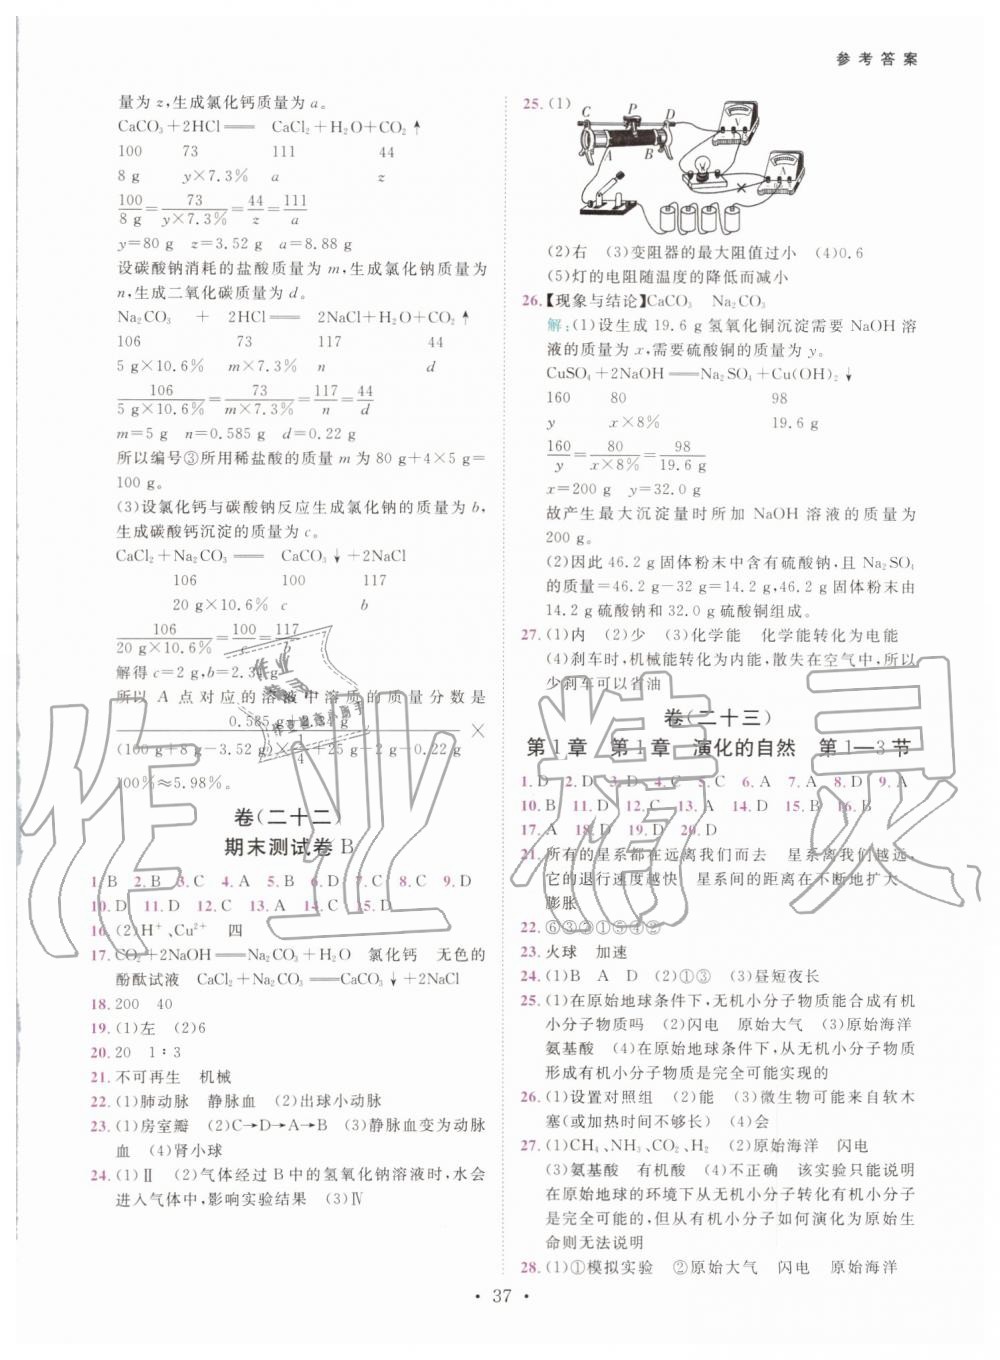 参考答案
量为 z,生成氯化钙质量为 a。
CaCO₃+2HCl══CaCl₂+H₂O+CO₂↑
100 73 111 44
8 g y×7.3% a z
100/8 g=73/y×7.3%=44/z=111/a
y=80 g z=3.52 g a=8.88 g
设碳酸钠消耗的盐酸质量为 m,生成氯化钠质量为
n,生成二氧化碳质量为 d。
Na₂CO₃ + 2HCl══2NaCl+H₂O+CO₂↑
106 73 117 44
5 g×10.6% m×7.3% n d
106/5 g×10.6%=73/m×7.3%=117/n=44/d
m=5 g n=0.585 g d=0.22 g
所以编号③所用稀盐酸的质量 m 为 80 g+4×5 g=
100 g。
(3)设氯化钙与碳酸钠反应生成氯化钠的质量为 b,
生成碳酸钙沉淀的质量为 c。
CaCl₂+Na₂CO₃══CaCO₃↓+2NaCl
106 100 117
20 g×10.6% c b
106/20 g×10.6%=100/c=117/b
解得 c=2 g,b=2.34 g
所以 A 点对应的溶液中溶质的质量分数是
0.585 g+2.34 g
(100 g+8 g-3.52 g)×1/4+25 g-2 g-0.22 g ×
100%≈5.98%。
卷(二十二)
期末测试卷 B
1. B 2. B 3. C 4. A 5. B 6. D 7. C 8. C 9. D
10. D 11. D 12. C 13. A 14. C 15. D
16. (2)H⁺、Cu²⁺ 四
17. CO₂+2NaOH══Na₂CO₃+H₂O 氯化钙 无色的
酚酞试液 CaCl₂+Na₂CO₃══CaCO₃↓+2NaCl
18. 200 40
19. (1)左 (2)6
20. 20 1∶3
21. 不可再生 机械
22. (1)肺动脉 静脉血 (2)出球小动脉
23. (1)房室瓣 (2)C→D→A→B (3)静脉血变为动脉
血 (4)肾小球
24. (1)Ⅱ (2)气体经过 B 中的氢氧化钠溶液时,水会
进入气体中,影响实验结果 (3)Ⅳ
25. (1)
C P D
A B
V
A
(2)右 (3)变阻器的最大阻值过小 (4)0.6
(5)灯的电阻随温度的降低而减小
26.【现象与结论】CaCO₃ Na₂CO₃
解:(1)设生成 19.6 g 氢氧化铜沉淀需要 NaOH 溶
液的质量为 x,需要硫酸铜的质量为 y。
CuSO₄+2NaOH══Na₂SO₄+Cu(OH)₂↓
160 80 98
y x×8% 19.6 g
160/y=80/x×8%=98/19.6 g
x=200 g y=32.0 g
故产生最大沉淀量时所加 NaOH 溶液的质量为
200 g。
(2)因此 46.2 g 固体粉末中含有硫酸钠,且 Na₂SO₄
的质量=46.2 g-32 g=14.2 g,46.2 g 固体粉末由
14.2 g 硫酸钠和 32.0 g 硫酸铜组成。
27. (1)内 (2)少 (3)化学能 化学能转化为电能
(4)刹车时,机械能转化为内能,散失在空气中,所以
少刹车可以省油
卷(二十三)
第 1 章 第 1 章 演化的自然 第 1—3 节
1. D 2. D 3. C 4. C 5. C 6. A 7. A 8. D 9. A
10. B 11. D 12. D 13. A 14. D 15. B 16. B
17. A 18. D 19. D 20. D
21. 所有的星系都在远离我们而去 星系离我们越远,
它的退行速度越快 星系间的距离在不断地扩大
膨胀
22. ⑥③②①⑤④②
23. 火球 加速
24. (1)B A D (2)①③ (3)昼短夜长
25. (1)在原始地球条件下,无机小分子物质能合成有机
小分子物质吗 (2)闪电 原始大气 (3)原始海洋
氨基酸 (4)在原始地球条件下,从无机小分子物质
形成有机小分子物质是完全可能实现的
26. (1)设置对照组 (2)能 (3)微生物可能来自软木
塞(或加热时间不够长) (4)会
27. (1)CH₄、NH₃、CO₂、H₂ (2)原始海洋 闪电
(3)氨基酸 有机酸 (4)不正确 该实验只能说明
在原始地球的环境下从无机小分子转化有机小分子
是完全可能的,但从有机小分子如何演化为原始生
命则无法说明
28. (1)①模拟实验 ②原始大气 闪电 原始海洋
• 37 •
作业精灵